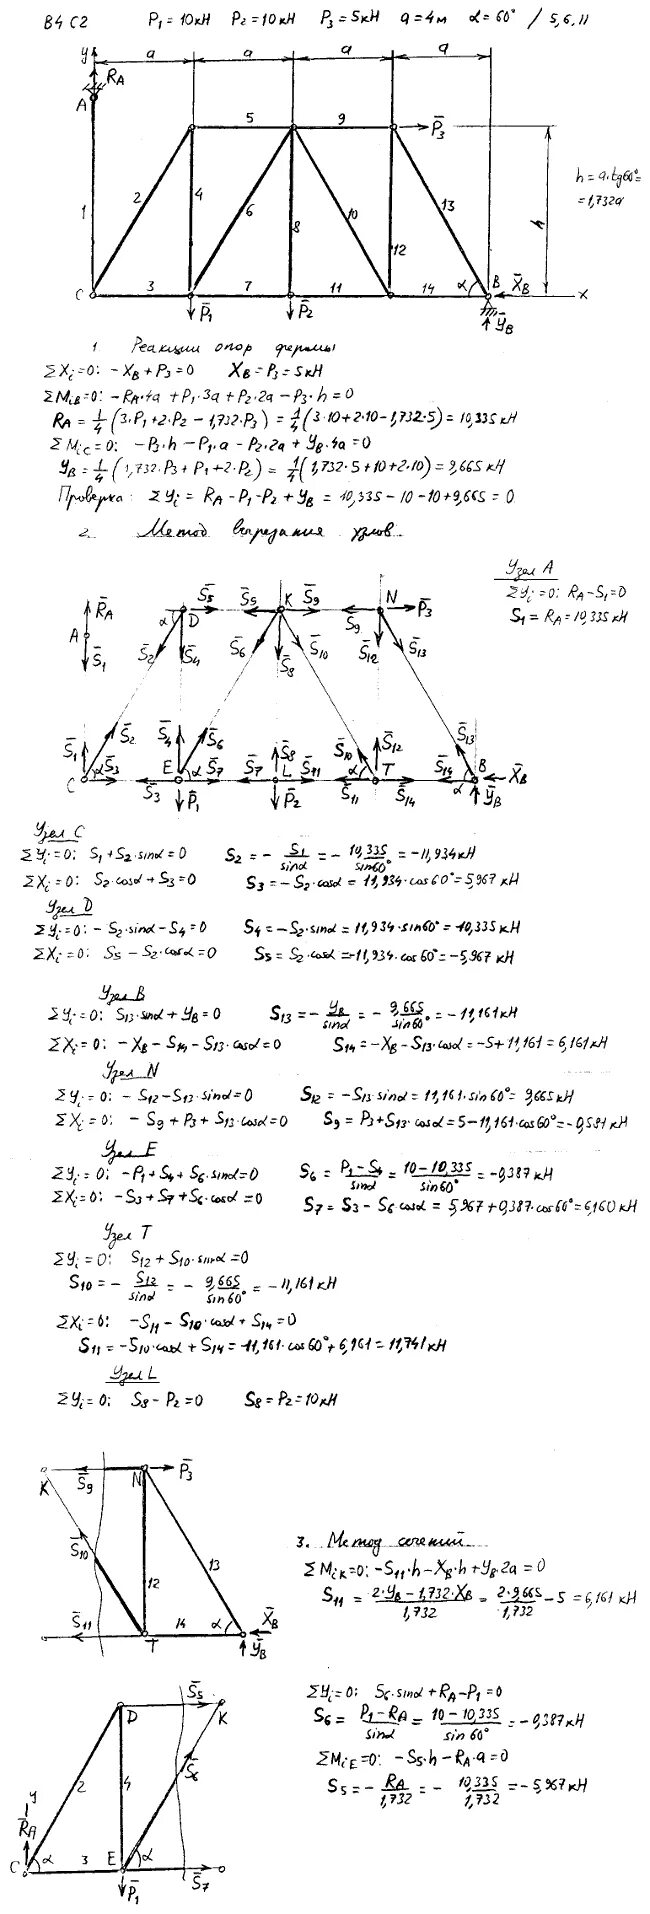 В4 С2 P₁ = 10кН P₂ = 10кН P₃ = 5кН a = 4м α = 60° / 5,6,11
y a a a a
R̄A
A
5 9 P̄₃
h = a·tg60° =
= 1,732a
1 2 4 6 8 10 12 13 h
C 3 7 11 14 α B X̄B x
P̄₁ P̄₂ ȲB
1. Реакции опор фермы
ΣXi=0: -XB + P3 = 0 XB = P3 = 5кН
ΣMiB=0: -RA·4a + P1·3a + P2·2a - P3·h = 0
RA = 1/4 (3·P1 + 2·P2 - 1,732·P3) = 1/4 (3·10 + 2·10 - 1,732·5) = 10,335 кН
ΣMiC=0: -P3·h - P1·a - P2·2a + YB·4a = 0
YB = 1/4 (1,732·P3 + P1 + 2·P2) = 1/4 (1,732·5 + 10 + 2·10) = 9,665 кН
Проверка: ΣYi = RA - P1 - P2 + YB = 10,335 - 10 - 10 + 9,665 = 0
2. Метод вырезания узлов
Узел A
ΣYi=0: RA - S1 = 0
S1 = RA = 10,335 кН
R̄A S̄5 S̄5 K S̄9 N P̄3
A α D S̄9
S̄1 S̄2 S̄4 S̄6 S̄8 S̄10 S̄12 S̄13
S̄1 S̄2 S̄4 S̄6 S̄8 S̄10 S̄12 S̄13
C α S̄3 E α S̄7 S̄7 L S̄11 α T S̄14 α B X̄B
S̄3 P̄1 P̄2 S̄11 S̄14 ȲB
Узел C
ΣYi=0: S1 + S2·sinα = 0 S2 = - S1/sinα = - 10,335/sin60° = -11,934 кН
ΣXi=0: S2·cosα + S3 = 0 S3 = -S2·cosα = 11,934·cos60° = 5,967 кН
Узел D
ΣYi=0: -S2·sinα - S4 = 0 S4 = -S2·sinα = 11,934·sin60° = 10,335 кН
ΣXi=0: S5 - S2·cosα = 0 S5 = S2·cosα = -11,934·cos60° = -5,967 кН
Узел B
ΣYi=0: S13·sinα + YB = 0 S13 = - YB/sinα = - 9,665/sin60° = -11,161 кН
ΣXi=0: -XB - S14 - S13·cosα = 0 S14 = -XB - S13·cosα = -5 + 11,161 = 6,161 кН
Узел N
ΣYi=0: -S12 - S13·sinα = 0 S12 = -S13·sinα = 11,161·sin60° = 9,665 кН
ΣXi=0: -S9 + P3 + S13·cosα = 0 S9 = P3 + S13·cosα = 5 - 11,161·cos60° = -0,581 кН
Узел E
ΣYi=0: -P1 + S4 + S6·sinα = 0 S6 = P1-S4/sinα = 10-10,335/sin60° = -0,387 кН
ΣXi=0: -S3 + S7 + S6·cosα = 0 S7 = S3 - S6·cosα = 5,967 + 0,387·cos60° = 6,160 кН
Узел T
ΣYi=0: S12 + S10·sinα = 0
S10 = - S12/sinα = - 9,665/sin60° = -11,161 кН
ΣXi=0: -S11 - S10·cosα + S14 = 0
S11 = -S10·cosα + S14 = 11,161·cos60° + 6,161 = 11,741 кН
Узел L
ΣYi=0: S8 - P2 = 0 S8 = P2 = 10 кН
K S̄9 N P̄3
S̄10 12 13
S̄11 T 14 α X̄B
ȲB
3. Метод сечений
ΣMiK=0: -S11·h - XB·h + YB·2a = 0
S11 = 2·YB - 1,732·XB/1,732 = 2·9,665/1,732 - 5 = 6,161 кН
D S̄5 K
2 4 S̄6
y R̄A
C α 3 E α S̄7
P̄1
ΣYi=0: S6·sinα + RA - P1 = 0
S6 = P1-RA/sinα = 10-10,335/sin60° = -0,387 кН
ΣMiE=0: -S5·h - RA·a = 0
S5 = - RA/1,732 = - 10,335/1,732 = -5,967 кН